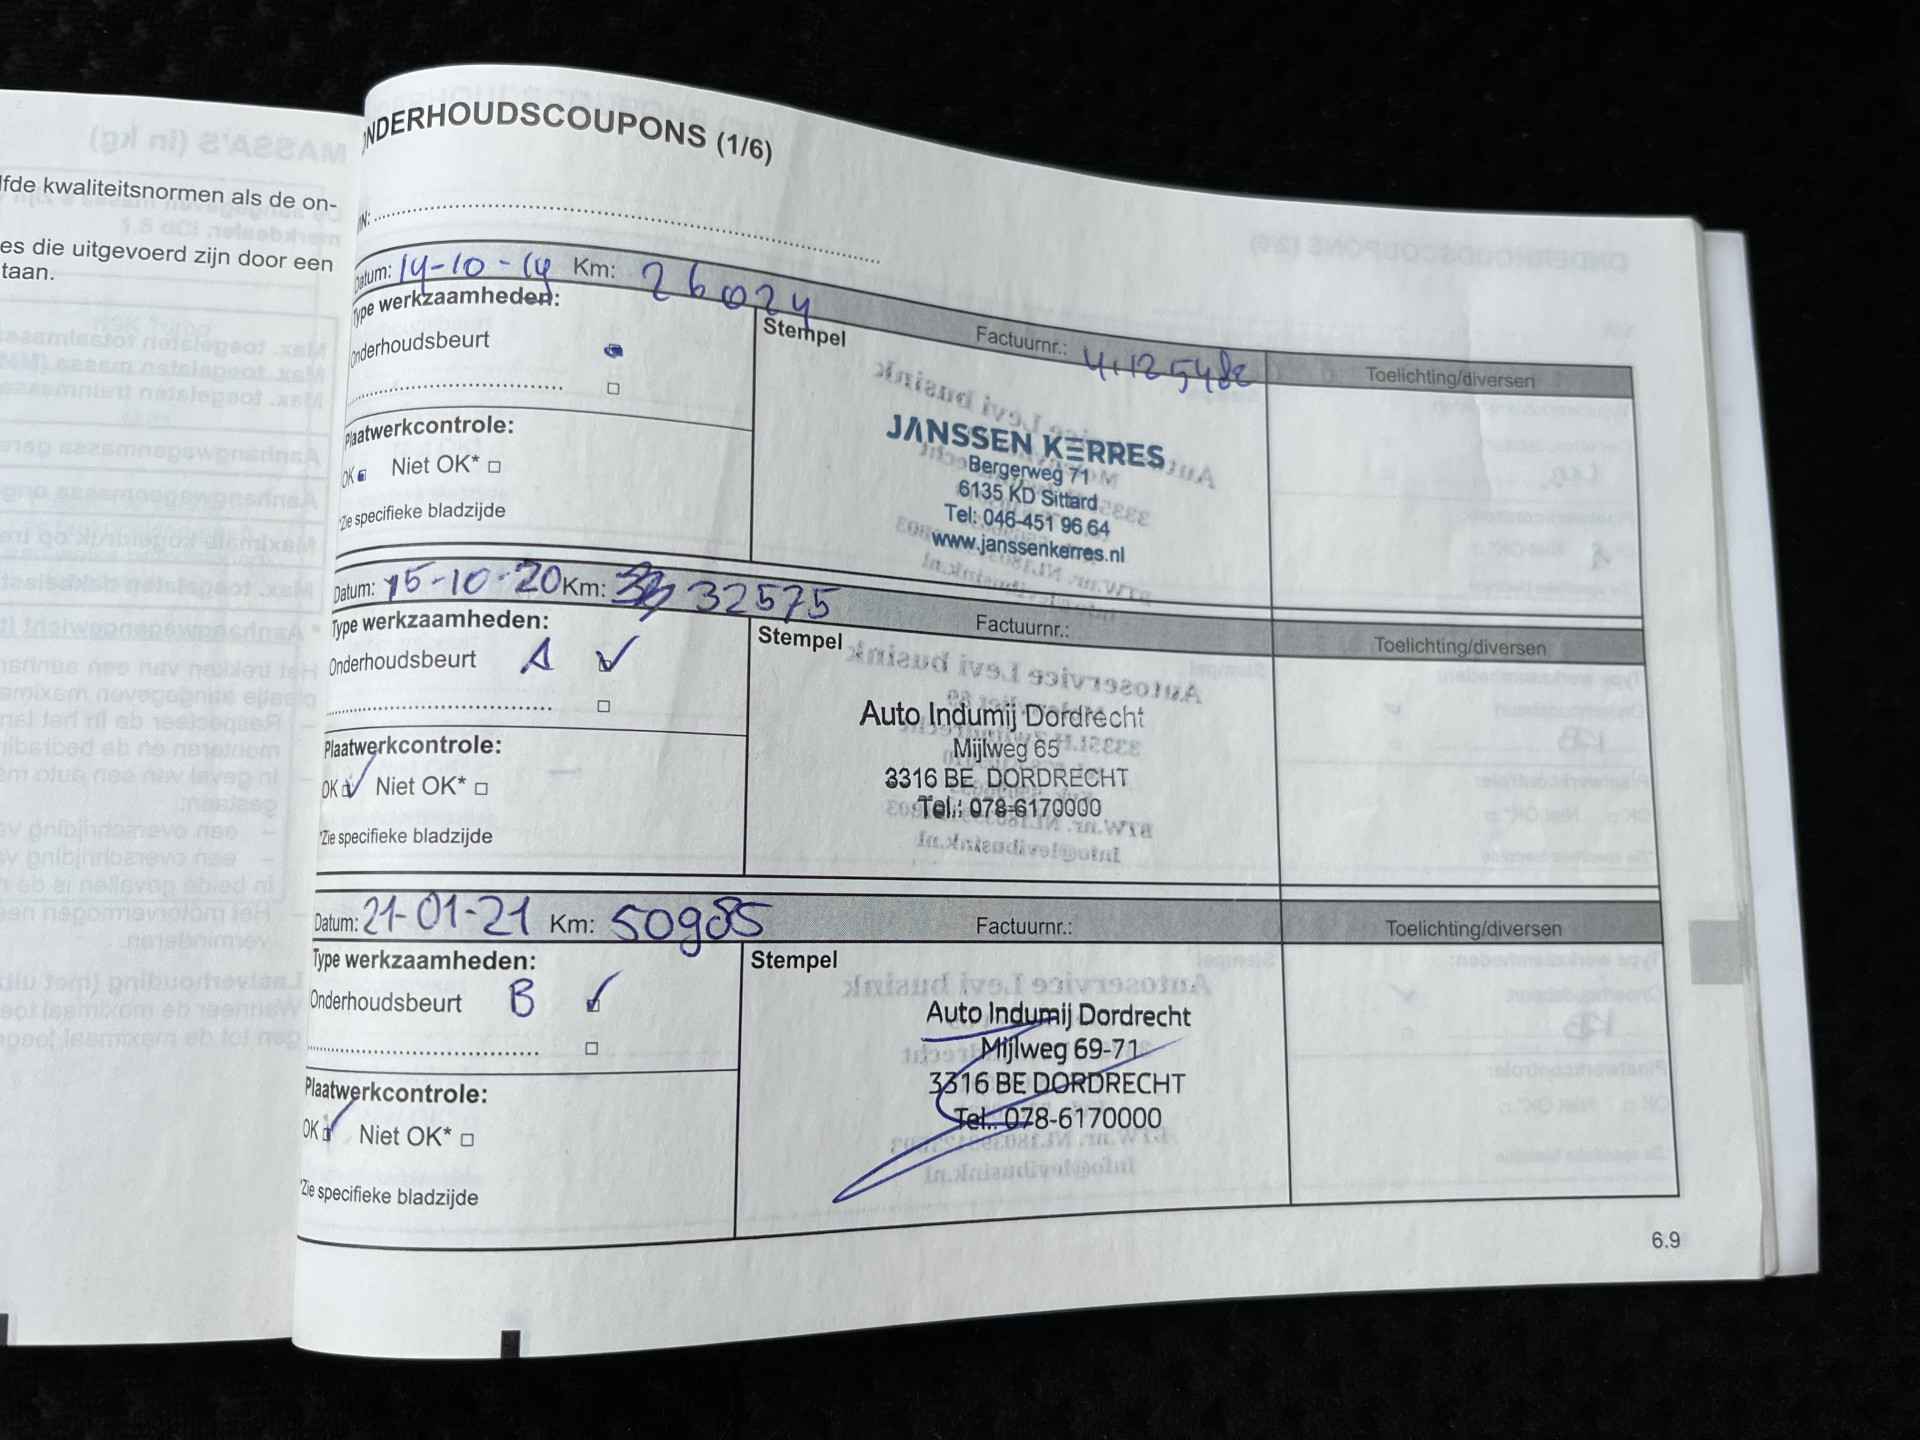 lfde kwaliteitsnormen als de on-
es die uitgevoerd zijn door een
taan.
ONDERHOUDSCOUPONS (1/6)
Datum: 14-10-14 Km: 26024
Factuurnr.: 41125482
Toelichting/diversen
Type werkzaamheden:
Stempel
Onderhoudsbeurt
JANSSEN KERRES
Bergerweg 71
6135 KD Sittard
Tel: 046-451 96 64
www.janssenkerres.nl
Plaatwerkcontrole:
OK Niet OK*
*Zie specifieke bladzijde
Datum: 15-10-20 Km: 32575
Factuurnr.:
Toelichting/diversen
Type werkzaamheden:
Stempel
Onderhoudsbeurt A
Auto Indumij Dordrecht
Mijlweg 65
3316 BE DORDRECHT
Tel.: 078-6170000
Plaatwerkcontrole:
OK Niet OK*
*Zie specifieke bladzijde
Datum: 21-01-21 Km: 50985
Factuurnr.:
Toelichting/diversen
Type werkzaamheden:
Stempel
Onderhoudsbeurt B
Auto Indumij Dordrecht
Mijlweg 69-71
3316 BE DORDRECHT
Tel.: 078-6170000
Plaatwerkcontrole:
OK Niet OK*
*Zie specifieke bladzijde
6.9